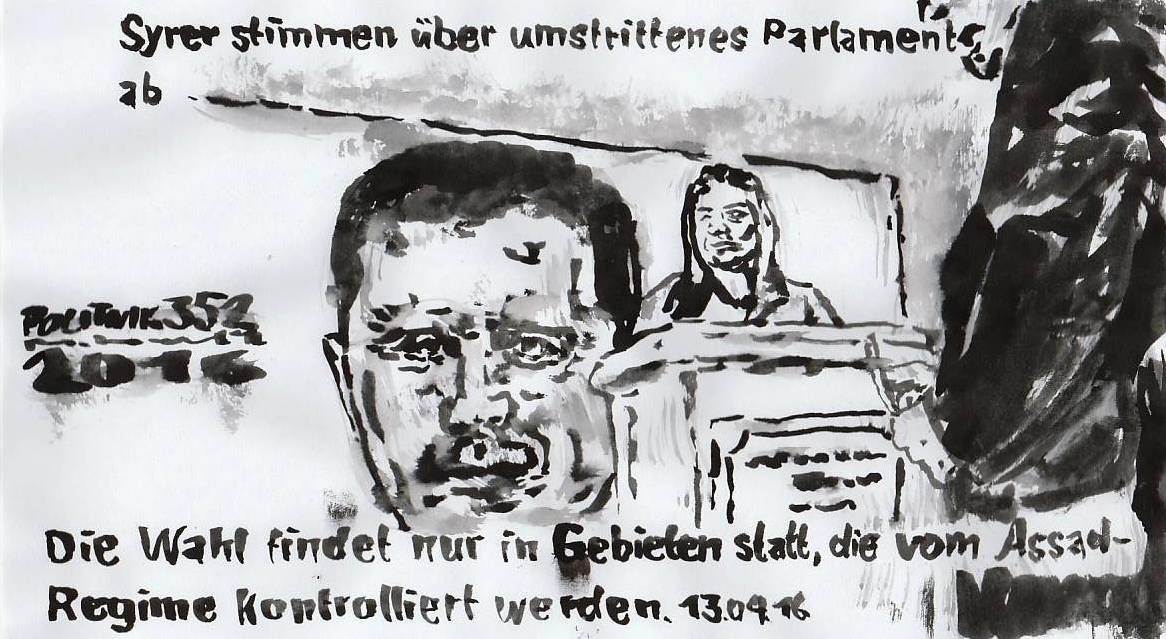 Syrer stimmen über umstrittenes Parlament
ab
POLITWIK 352
2016
Die Wahl findet nur in Gebieten statt, die vom Assad-
Regime kontrolliert werden. 13.04.16